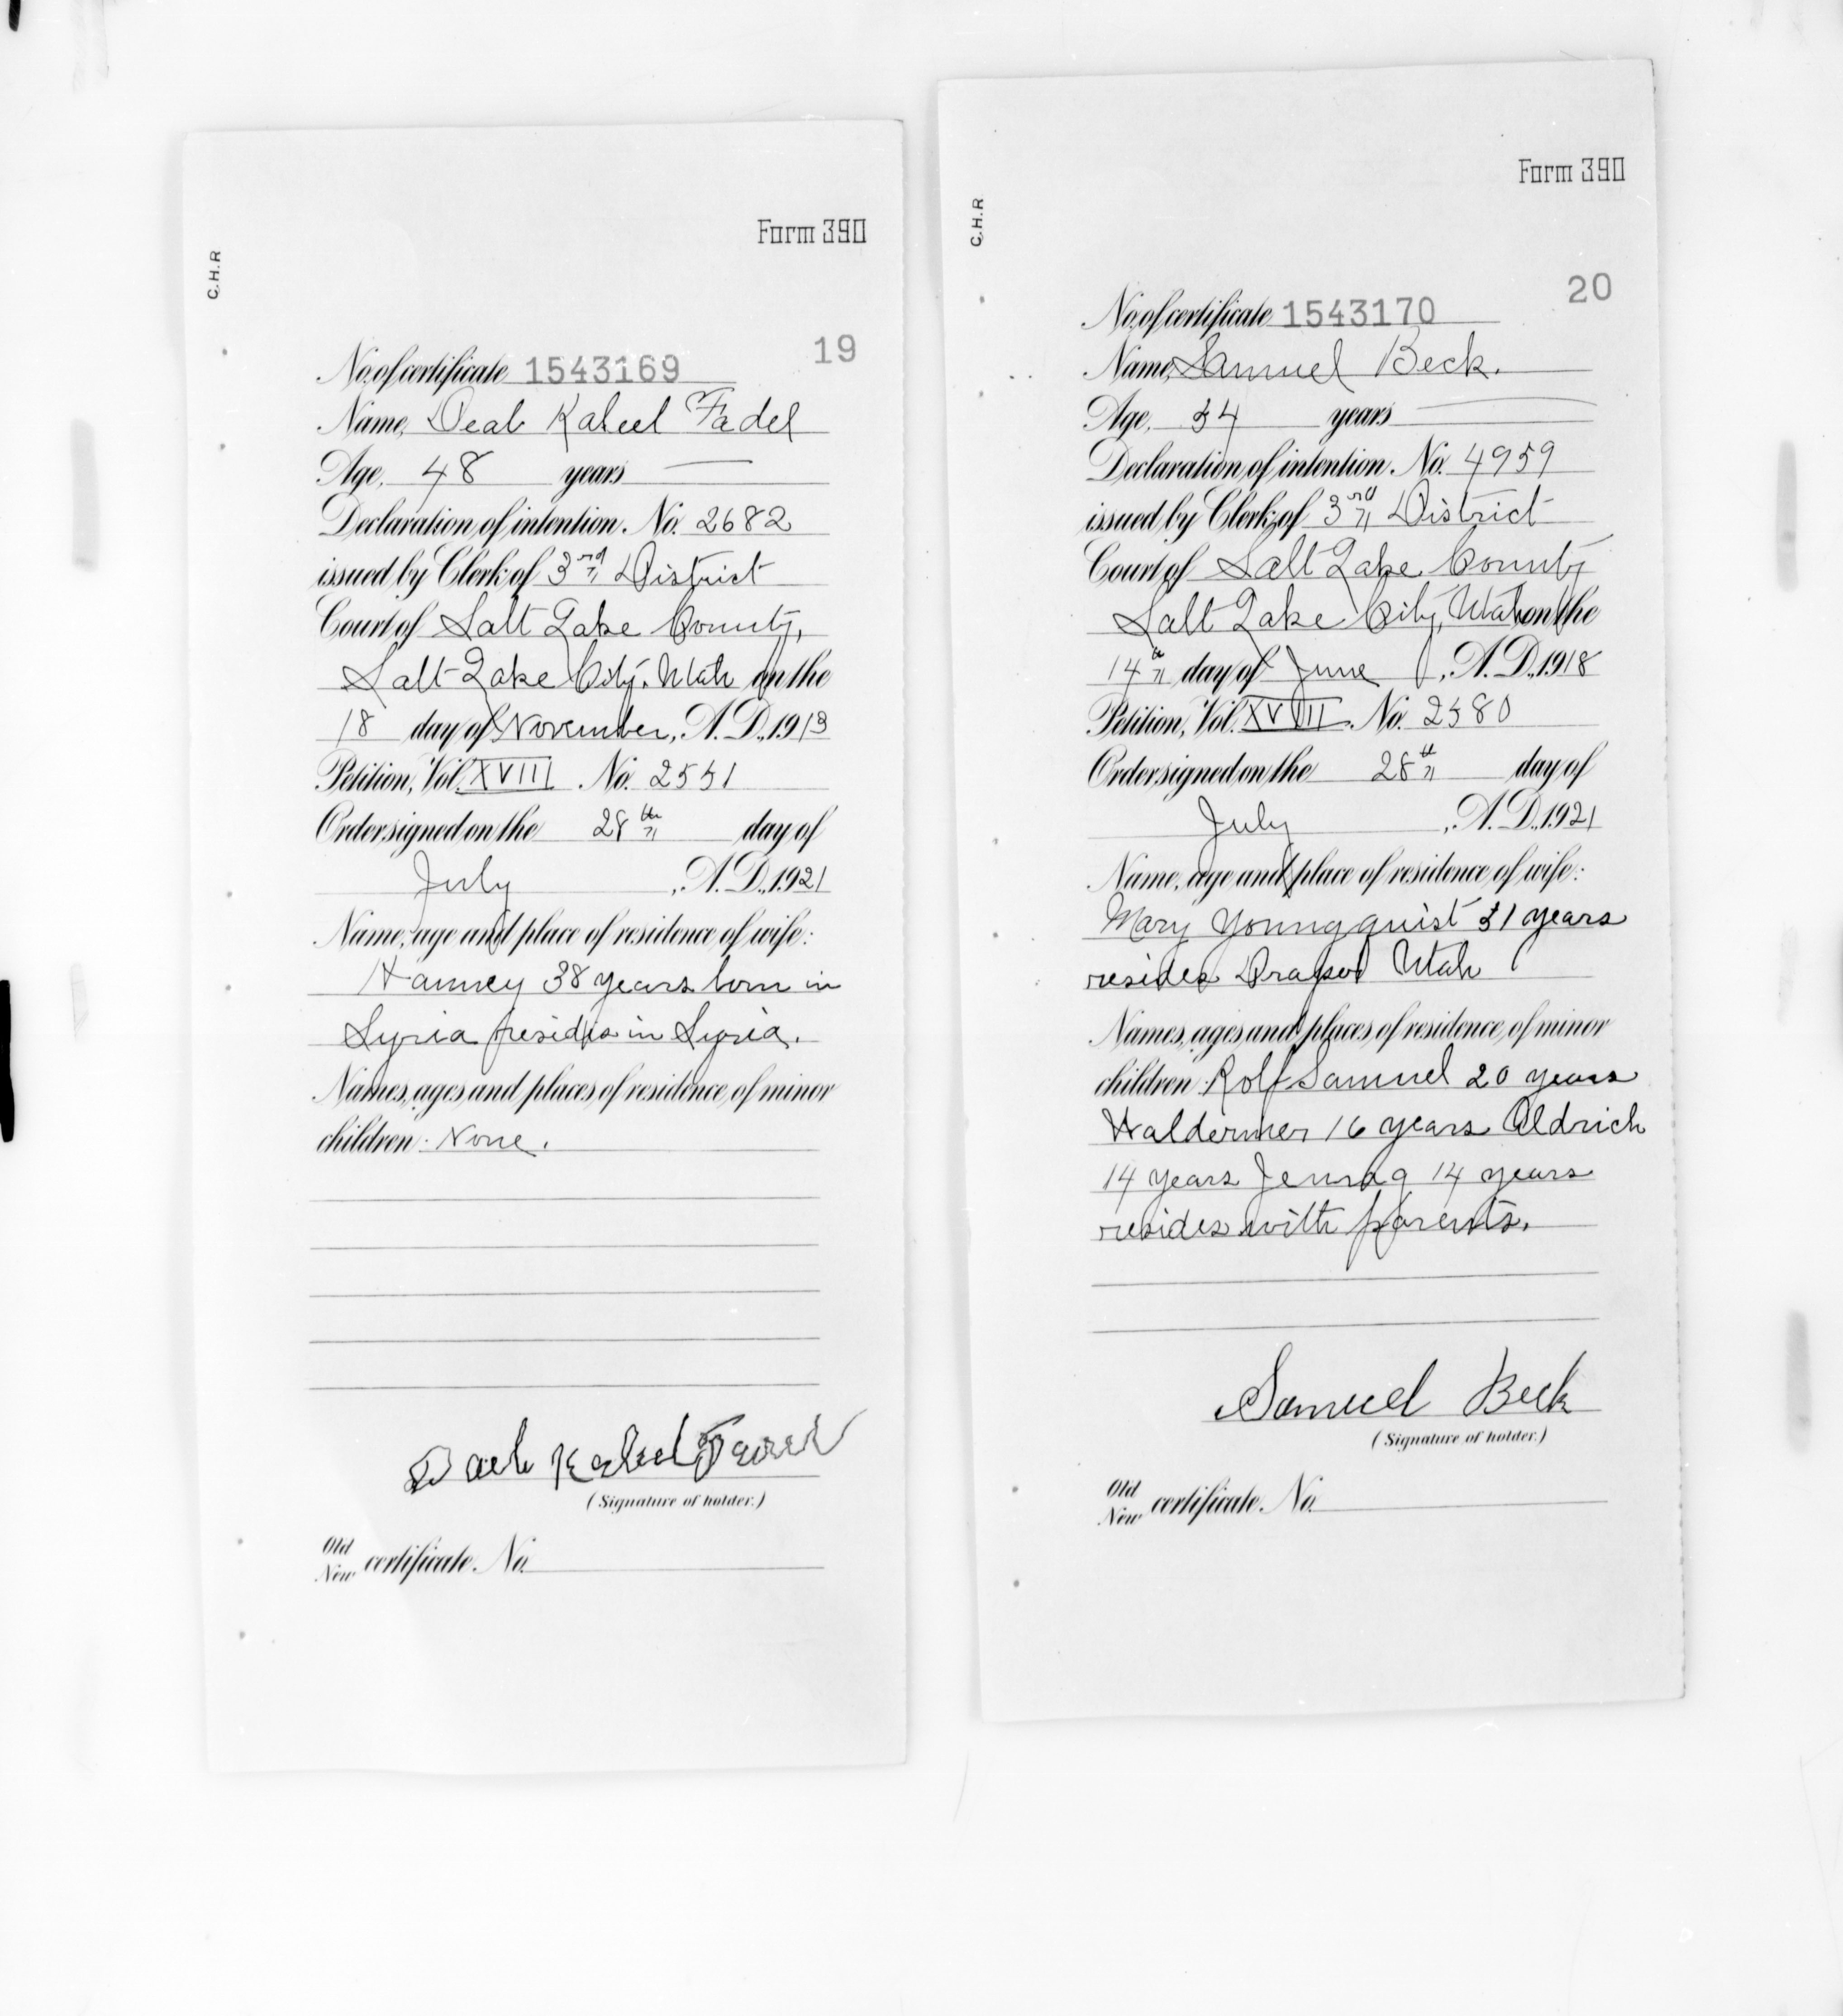 C.H.R
Form 390
19
No. of certificate 1543169
Name, Deab Kaleel Fadel
Age, 48 years
Declaration of intention. No. 2682
issued by Clerk of 3rd District
Court of Salt Lake County,
Salt Lake City, Utah on the
18 day of November, A. D., 1913
Petition, Vol. XVIII No. 2551
Order signed on the 28th day of
July, A. D., 1921
Name, age and place of residence of wife:
38 years born in
Syria resides in Syria.
Names, ages and places of residence of minor
children: None.
(Signature of holder.)
Old
New certificate. No.
C.H.R
Form 390
20
No. of certificate 1543170
Name, Samuel Beck.
Age, 54 years
Declaration of intention. No. 4959
issued by Clerk of 3rd District
Court of Salt Lake County
Salt Lake City, Utah on the
14th day of June, A. D., 1918
Petition, Vol. XVIII. No. 2580
Order signed on the 28th day of
July, A. D., 1921
Name, age and place of residence of wife:
Mary Youngquist 51 years
resides Draper Utah
Names, ages and places of residence of minor
children: Rolf Samuel 20 years
Waldermer 16 years Aldrich
14 years 14 years
resides with parents.
Samuel Beck
(Signature of holder.)
Old
New certificate. No.